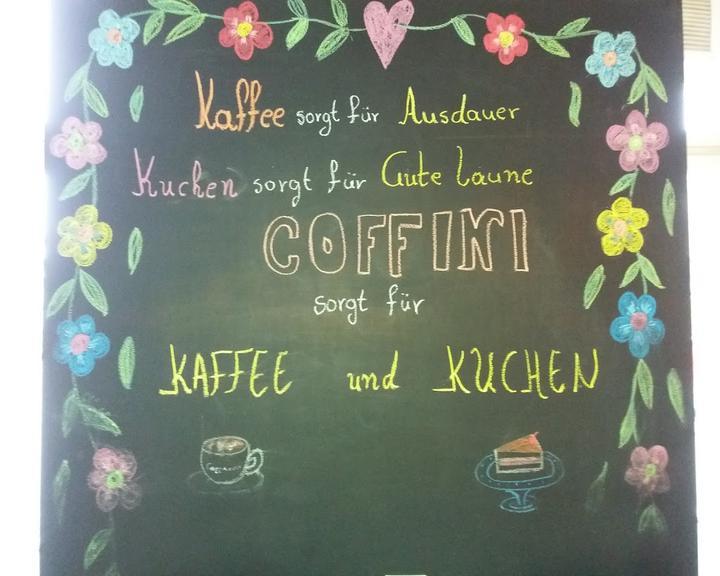 Kaffee sorgt für Ausdauer
Kuchen sorgt für Gute Laune
COFFINI
sorgt für
KAFFEE und KUCHEN